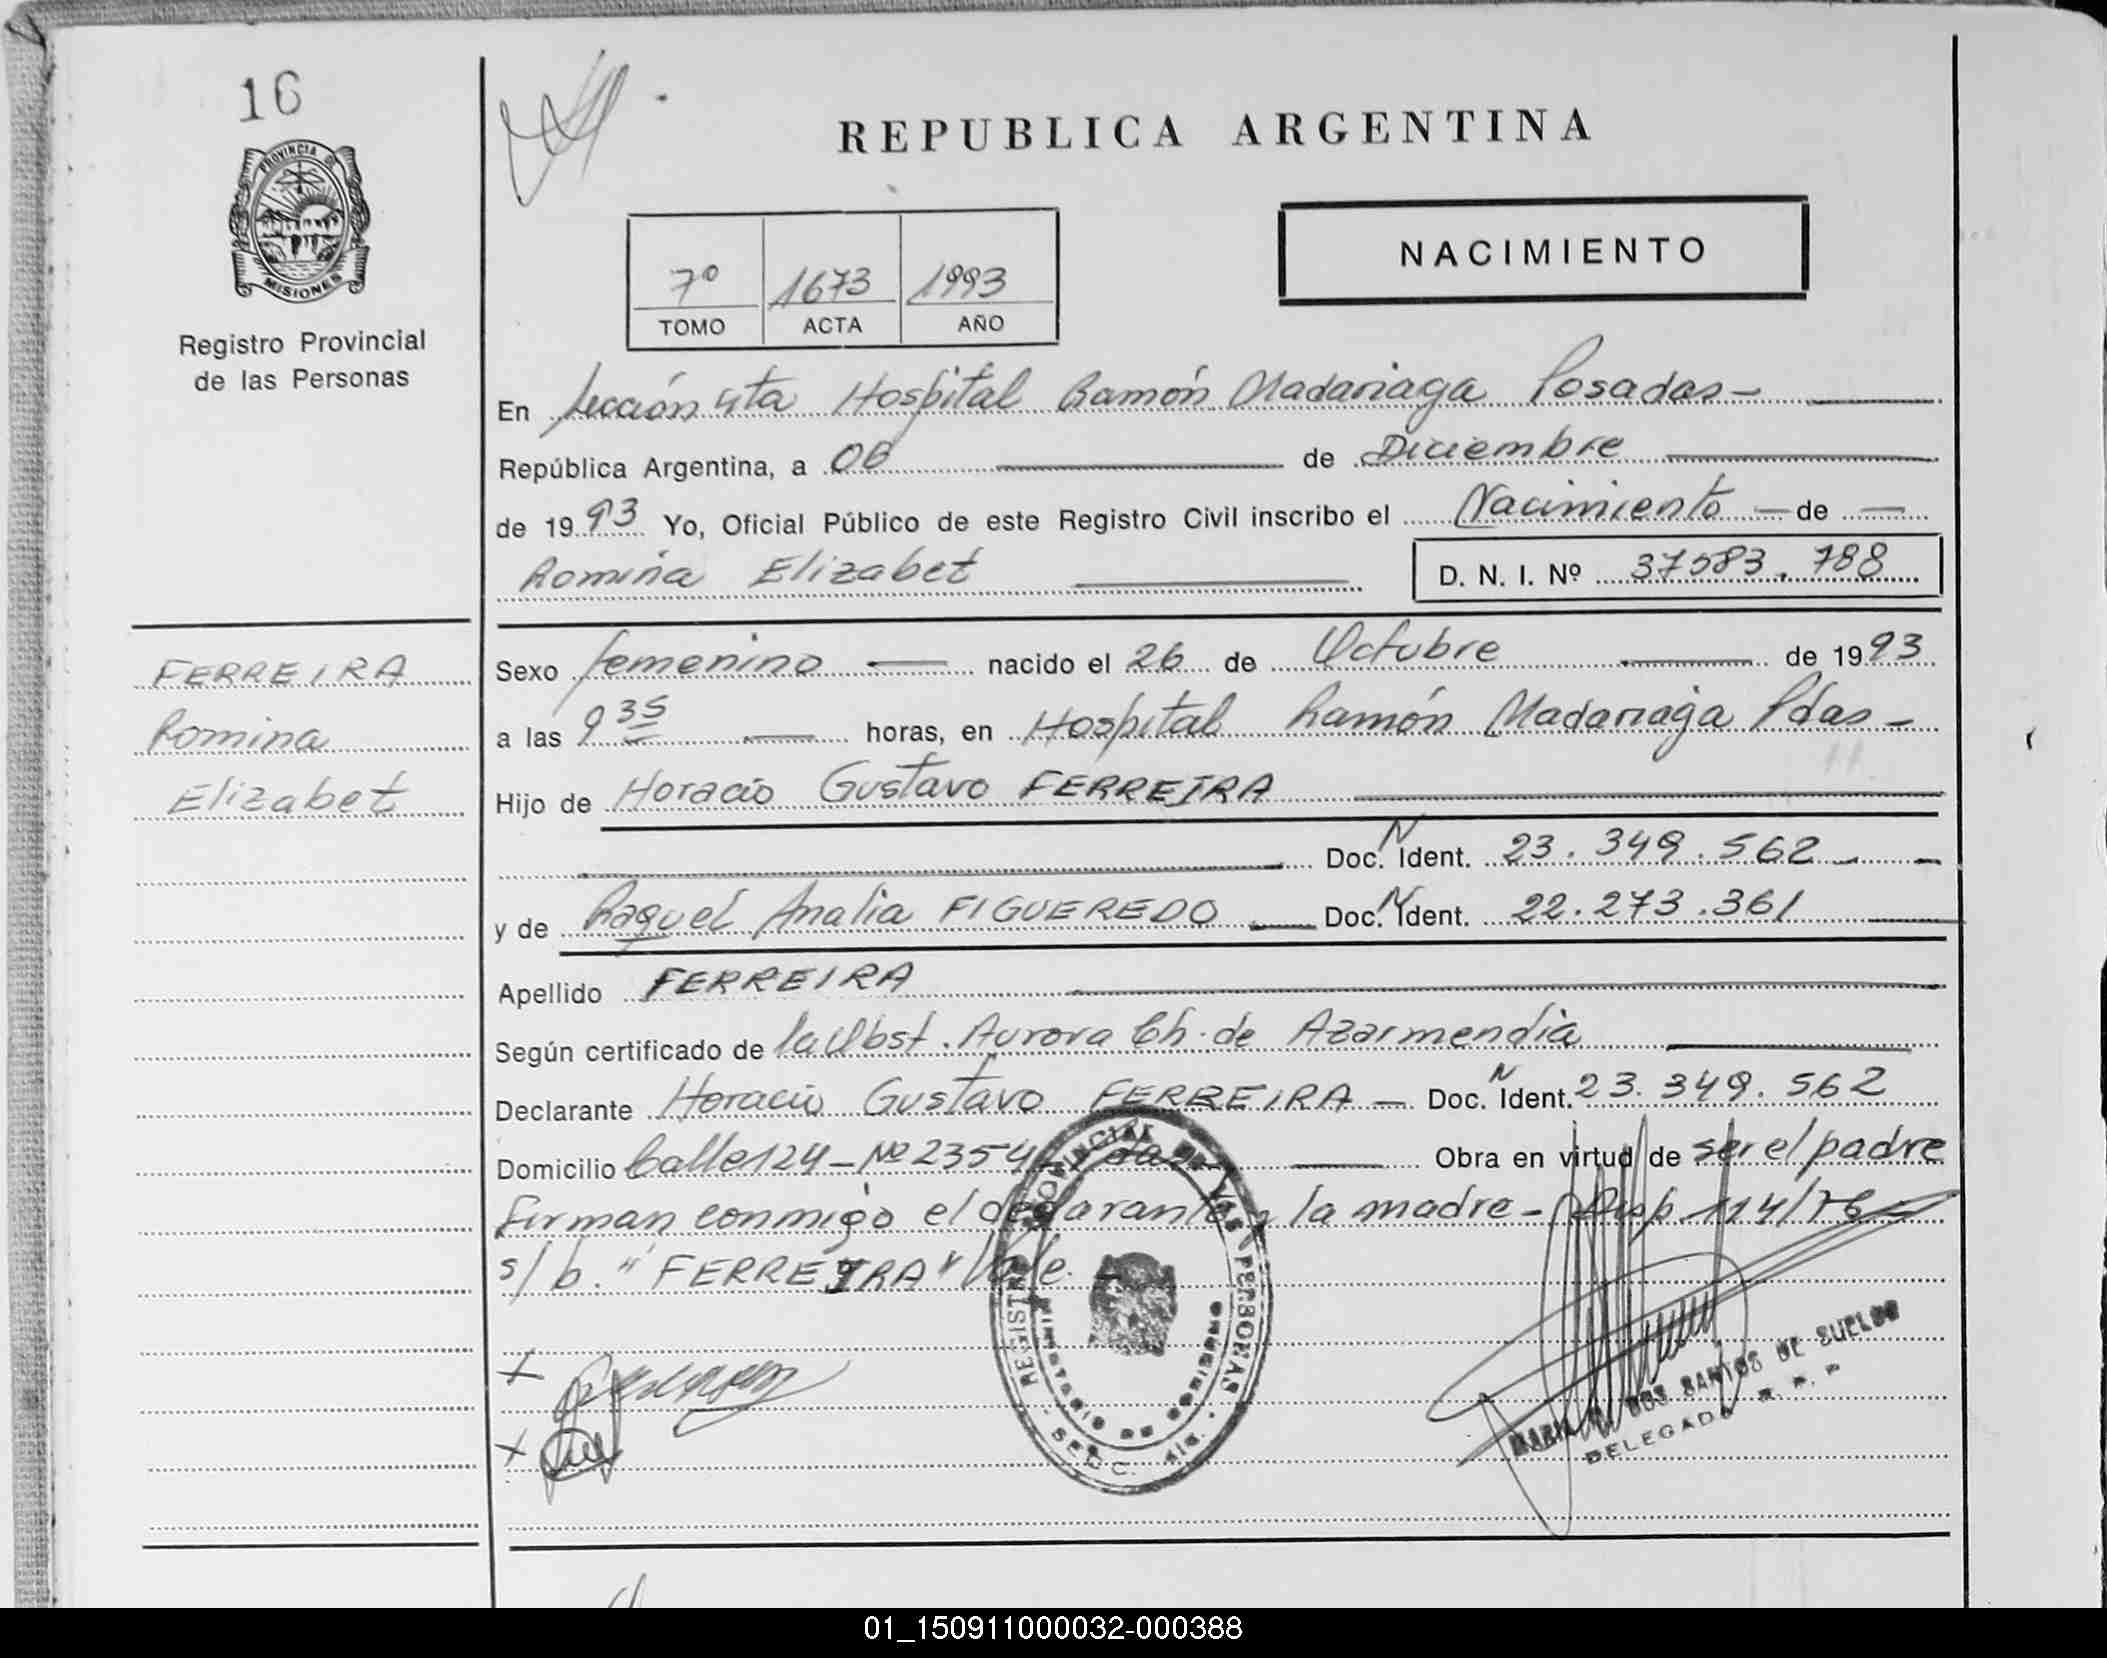 16
REPUBLICA ARGENTINA
PROVINCIA DE
MISIONES
Registro Provincial
de las Personas
NACIMIENTO
7º 1673 1993
TOMO ACTA AÑO
En Sección 4ta Hospital Ramón Madariaga Posadas -
República Argentina, a 06 de Diciembre
de 1993 Yo, Oficial Público de este Registro Civil inscribo el Nacimiento de
Romina Elizabet D. N. I. Nº 37583.788
FERREIRA
Romina
Elizabet
Sexo femenino nacido el 26 de Octubre de 1993
a las 9 35 horas, en Hospital Ramón Madariaga Pdas -
Hijo de Horacio Gustavo FERREIRA
Doc. N Ident. 23.349.562
y de Raquel Analia FIGUEREDO Doc. N Ident. 22.273.361
Apellido FERREIRA
Según certificado de la Obst. Aurora Ch. de Azarmendia
Declarante Horacio Gustavo FERREIRA - Doc. N Ident. 23.349.562
Domicilio Calle 124 - Nº 2354 - Pdas - Obra en virtud de ser el padre
firman conmigo el declarante y la madre - Disp 114/76
s/b. "FERREIRA" Vale. -
REGISTRO PROVINCIAL DE LAS PERSONAS
MINISTERIO DE GOBIERNO
DOS SANTOS DE SUELDO
DELEGADA R. P. P
01_150911000032-000388